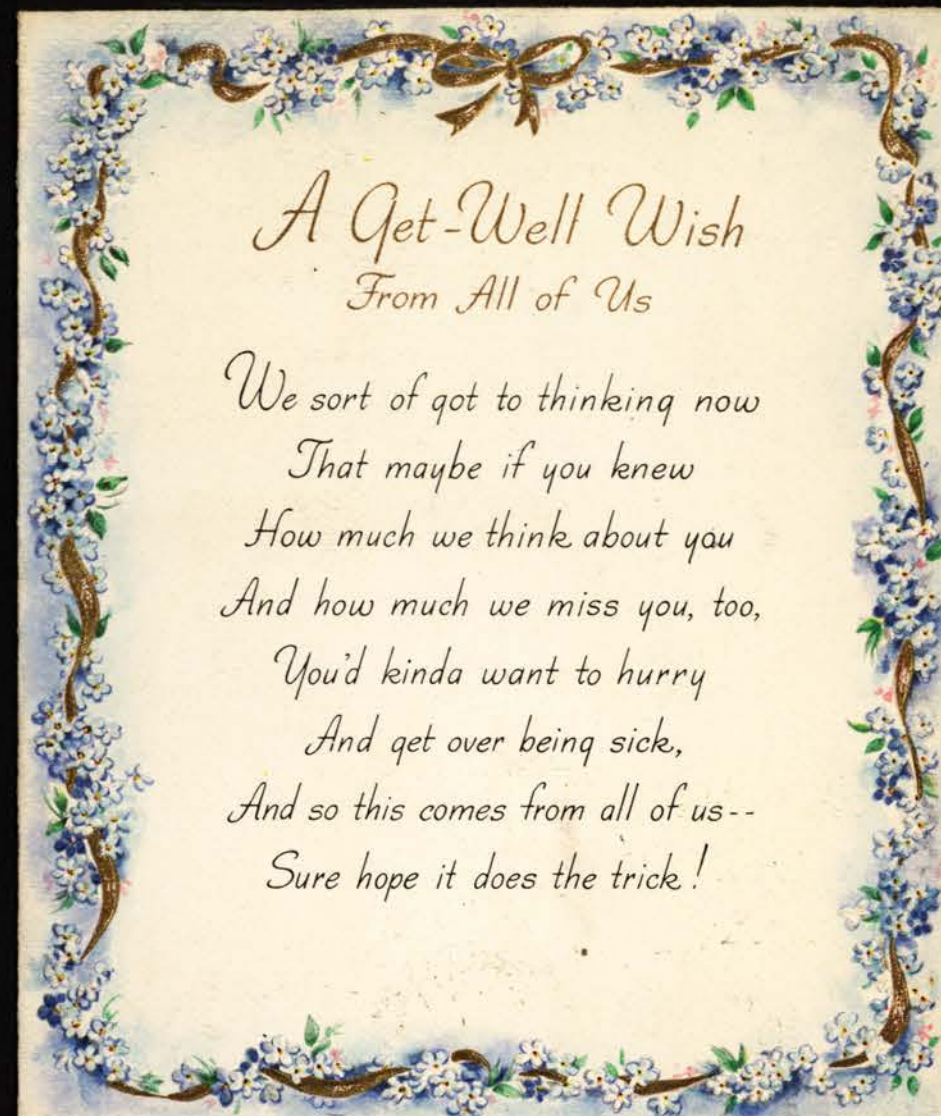 A Get-Well Wish
From All of Us
We sort of got to thinking now
That maybe if you knew
How much we think about you
And how much we miss you, too,
You'd kinda want to hurry
And get over being sick,
And so this comes from all of us--
Sure hope it does the trick!